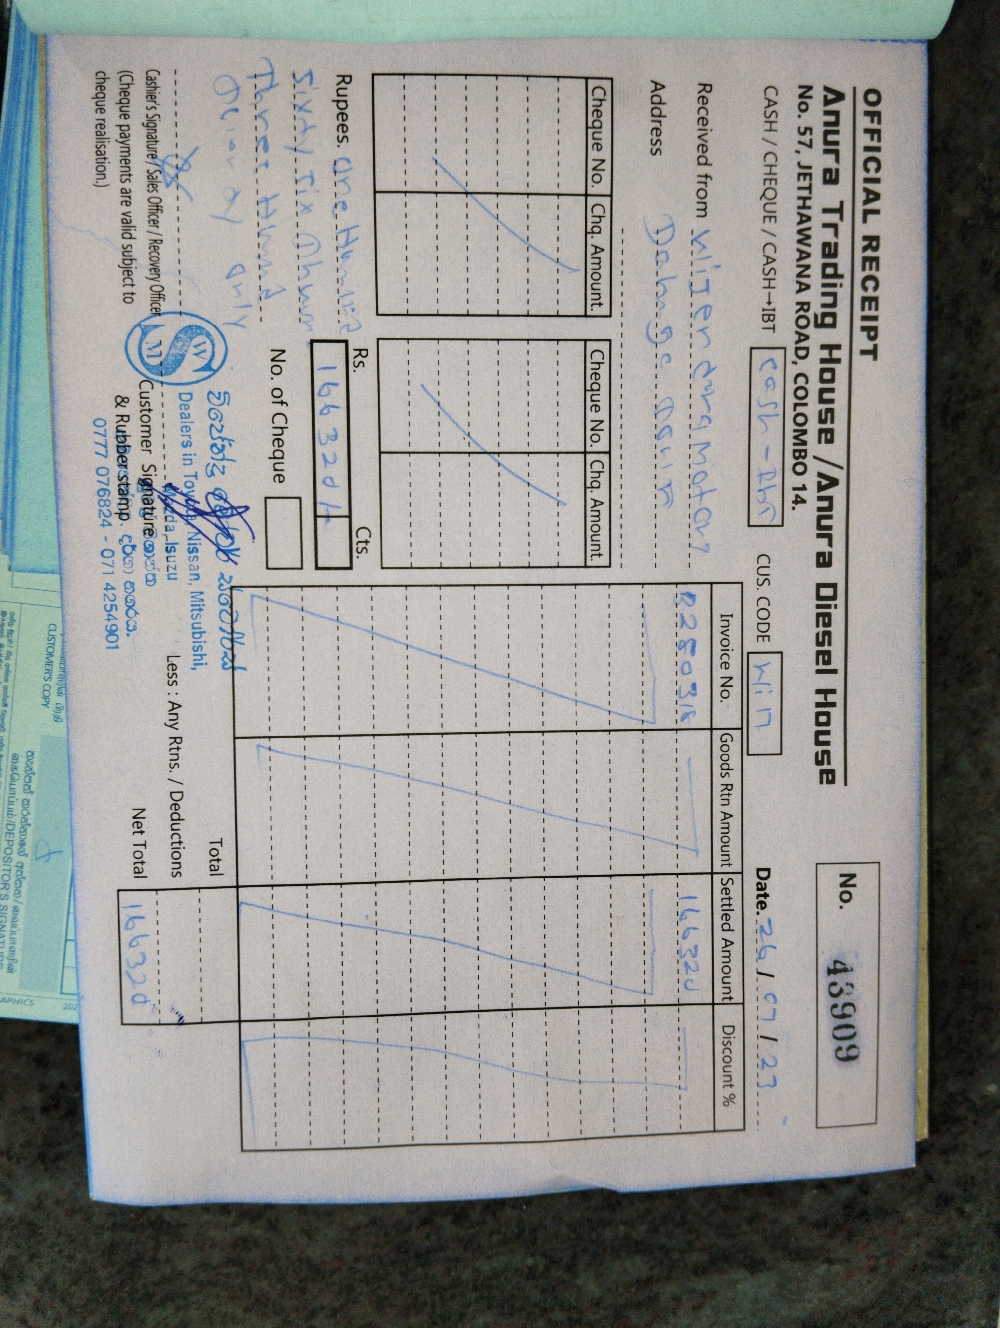 OFFICIAL RECEIPT
Anura Trading House / Anura Diesel House
No. 57, JETHAWANA ROAD, COLOMBO 14.
No. 43909
CASH / CHEQUE / CASH→IBT Cash -
CUS. CODE Win
Date. 26 / 07 / 23
Received from Wijendura Motors
Address
Cheque No. Chq. Amount.
Cheque No. Chq. Amount.
Invoice No. Goods Rtn Amount Settled Amount Discount %
166320
Rupees. One Hundred
Sixty Six
Three Hund
only
Rs. Cts.
166320/-
No. of Cheque
Total
Less : Any Rtns. / Deductions
Net Total 166320
Cashier's Signature / Sales Officer / Recovery Officer
(Cheque payments are valid subject to
cheque realisation.)
Customer Signature
& Rubber stamp.
W
S
M
Dealers in Toyota, Nissan, Mitsubishi,
Mazda, Isuzu
0777 076824 - 071 4254901
CUSTOMER'S COPY
DEPOSITOR'S SIGNATURE